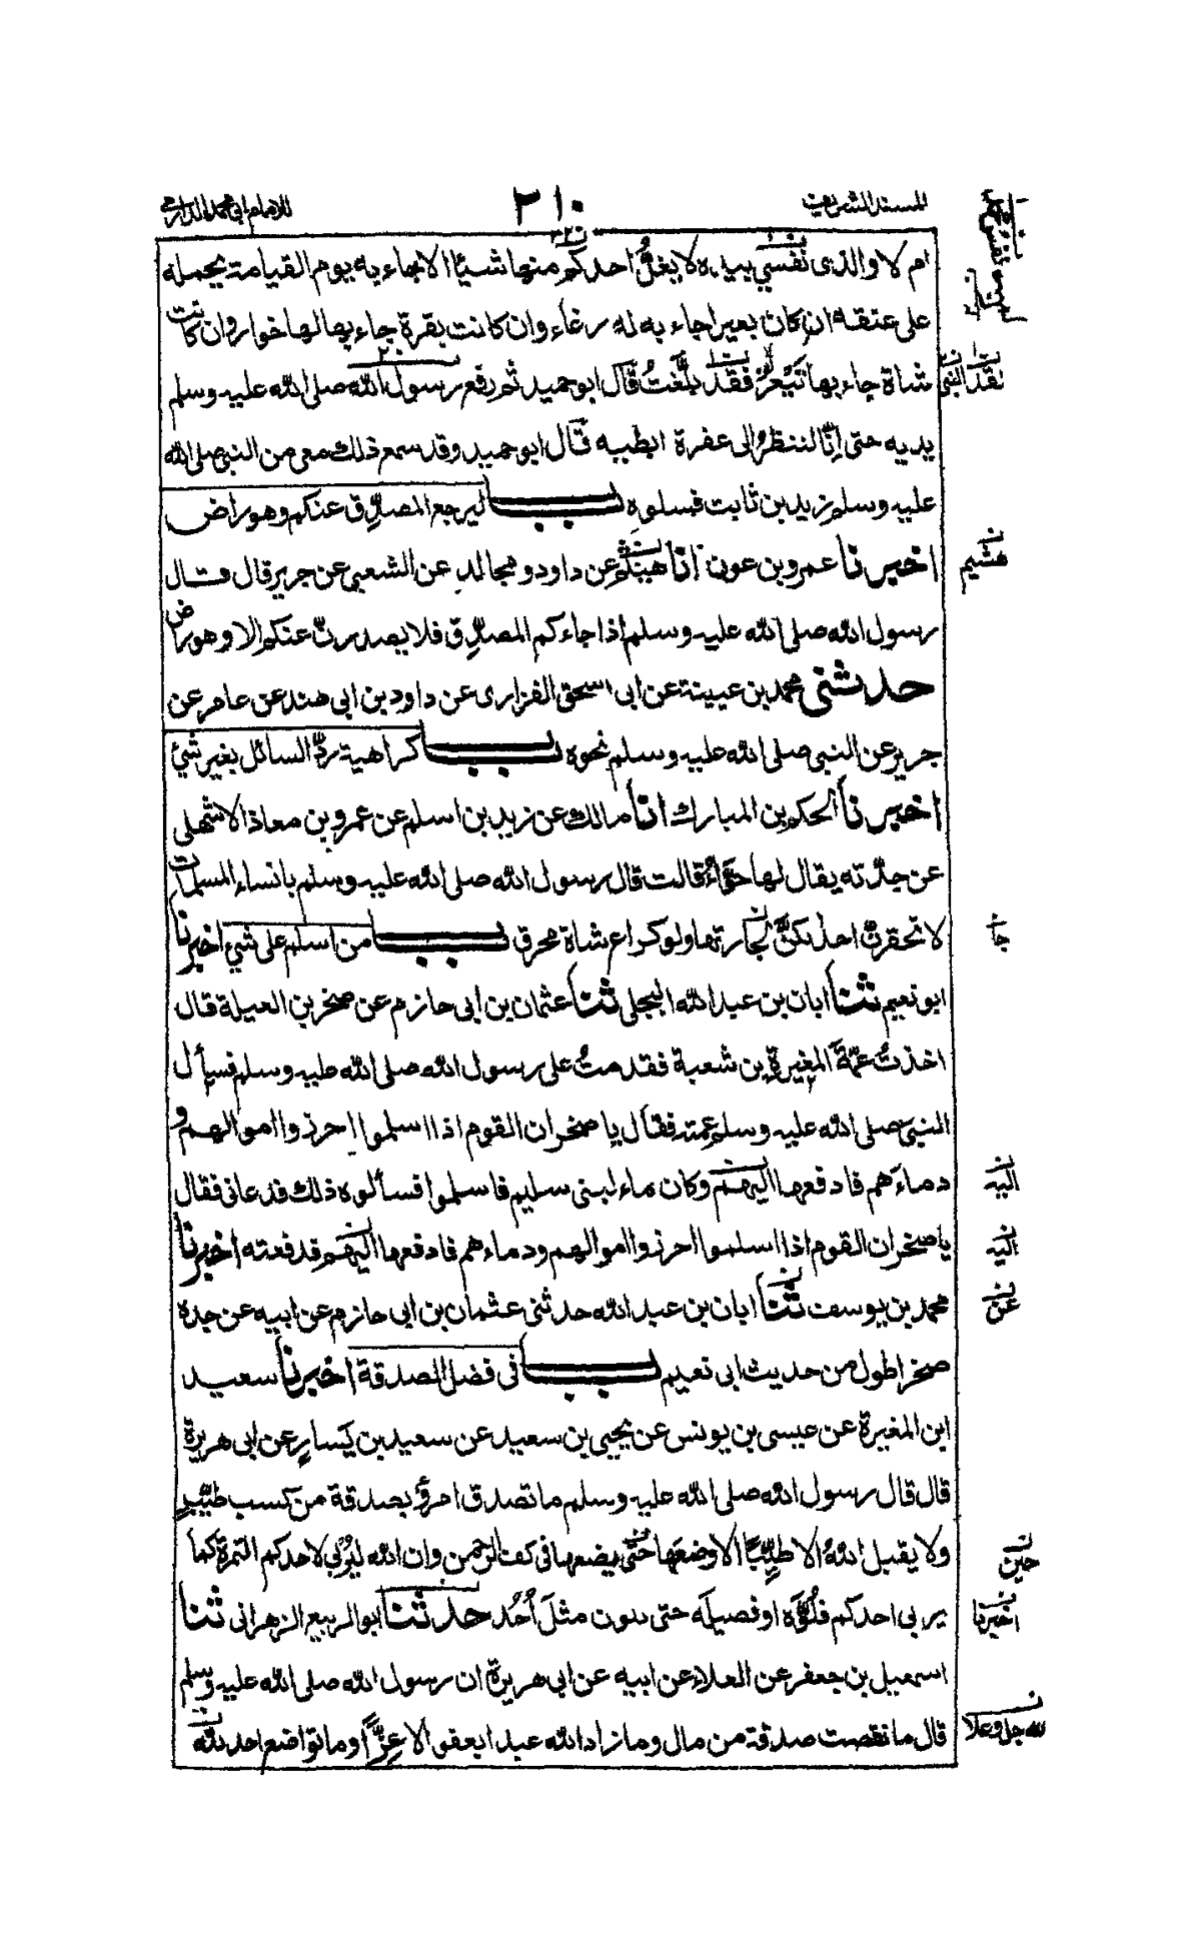 المسند الشريف ٢١٠ للامام ابي محمد الدارمي
ام لا والذى نفسي بيده لا يغلُّ احدكم منها شيئا الا جاء به يوم القيامة يحمله
على عنقه ان كان بعيرا جاء به له رغاء وان كانت بقرة جاء بها لها خوار وان كانت
شاة جاء بها تَيْعَرُ فقد بلَّغتُ قال ابو حميد ثم رفع رسول الله صلى الله عليه وسلم
نقد النبي
يديه حتى اِنّا لننظرُ الى عفرة ابطيه قال ابو حميد وقد سمع ذلك معي من النبي صلى الله
عليه وسلم زيد بن ثابت فسلوه باب ليرجع المصدِّق عنكم وهو راض
اخبرنا عمرو بن عون انا هيثم عن داود ومجالد عن الشعبي عن جرير قال قال
هشيم
رسول الله صلى الله عليه وسلم اذا جاءكم المصدِّق فلا يصدرنّ عنكم الا وهو راض
حدثنى محمد بن عيينة عن ابى اسحق الفزارى عن داود بن ابى هند عن عامر عن
جرير عن النبي صلى الله عليه وسلم نحوه باب كراهية ردّ السائل بغير شيء
اخبرنا الحكم بن المبارك انا مالك عن زيد بن اسلم عن عمرو بن معاذ الاشهلى
عن جدّته يقال لها حوّاءُ قالت قال رسول الله صلى الله عليه وسلم يا نساء المسلمات
لا تحقرنّ احداكنَّ لجارتها ولو كراع شاة محرق باب من اسلم على شيء اخبرنا
جاء
ابو نعيم ثنا ابان بن عبد الله البجلى ثنا عثمان بن ابى حازم عن صخر بن العيلة قال
اخذتُ عمّةَ المغيرةِ بن شعبة فقدمتُ على رسول الله صلى الله عليه وسلم فسأل
النبي صلى الله عليه وسلم عمته فقال يا صخر ان القوم اذا اسلموا احرزوا اموالهم و
دماءهم فادفعها اليهم وكان ماء لبنى سليم فاسلموا فسألوه ذلك فدعانى فقال
اليه
يا صخر ان القوم اذا اسلموا احرزوا اموالهم ودماءهم فادفعها اليهم فدفعته اخبرنا
اليه
محمد بن يوسف ثنا ابان بن عبد الله حدثنى عثمان بن ابى حازم عن ابيه عن جده
عن
صخر اطول من حديث ابى نعيم باب فى فضل الصدقة اخبرنا سعيد
ابن المغيرة عن عيسى بن يونس عن يحيى بن سعيد عن سعيد بن يَسار عن ابى هريرة
قال قال رسول الله صلى الله عليه وسلم ما تصدق امرؤٌ بصدقة من كسب طيّبٍ
ولا يقبل اللهُ الا طيِّبًا الا وضعها حتى يضعها فى كف الرحمن وان الله ليُرْبى لاحدكم التمرة كما
حين
يربى احدكم فلُوَّه او فصيله حتى تكون مثلَ اُحُد حدثنا ابو الربيع الزهرانى ثنا
اخبرنا
اسمعيل بن جعفر عن العلاء عن ابيه عن ابى هريرة ان رسول الله صلى الله عليه وسلم
قال ما نقصت صدقة من مال وما زاد الله عبدا بعفو الا عِزًّا وما تواضع احد لله
لله جل وعلا